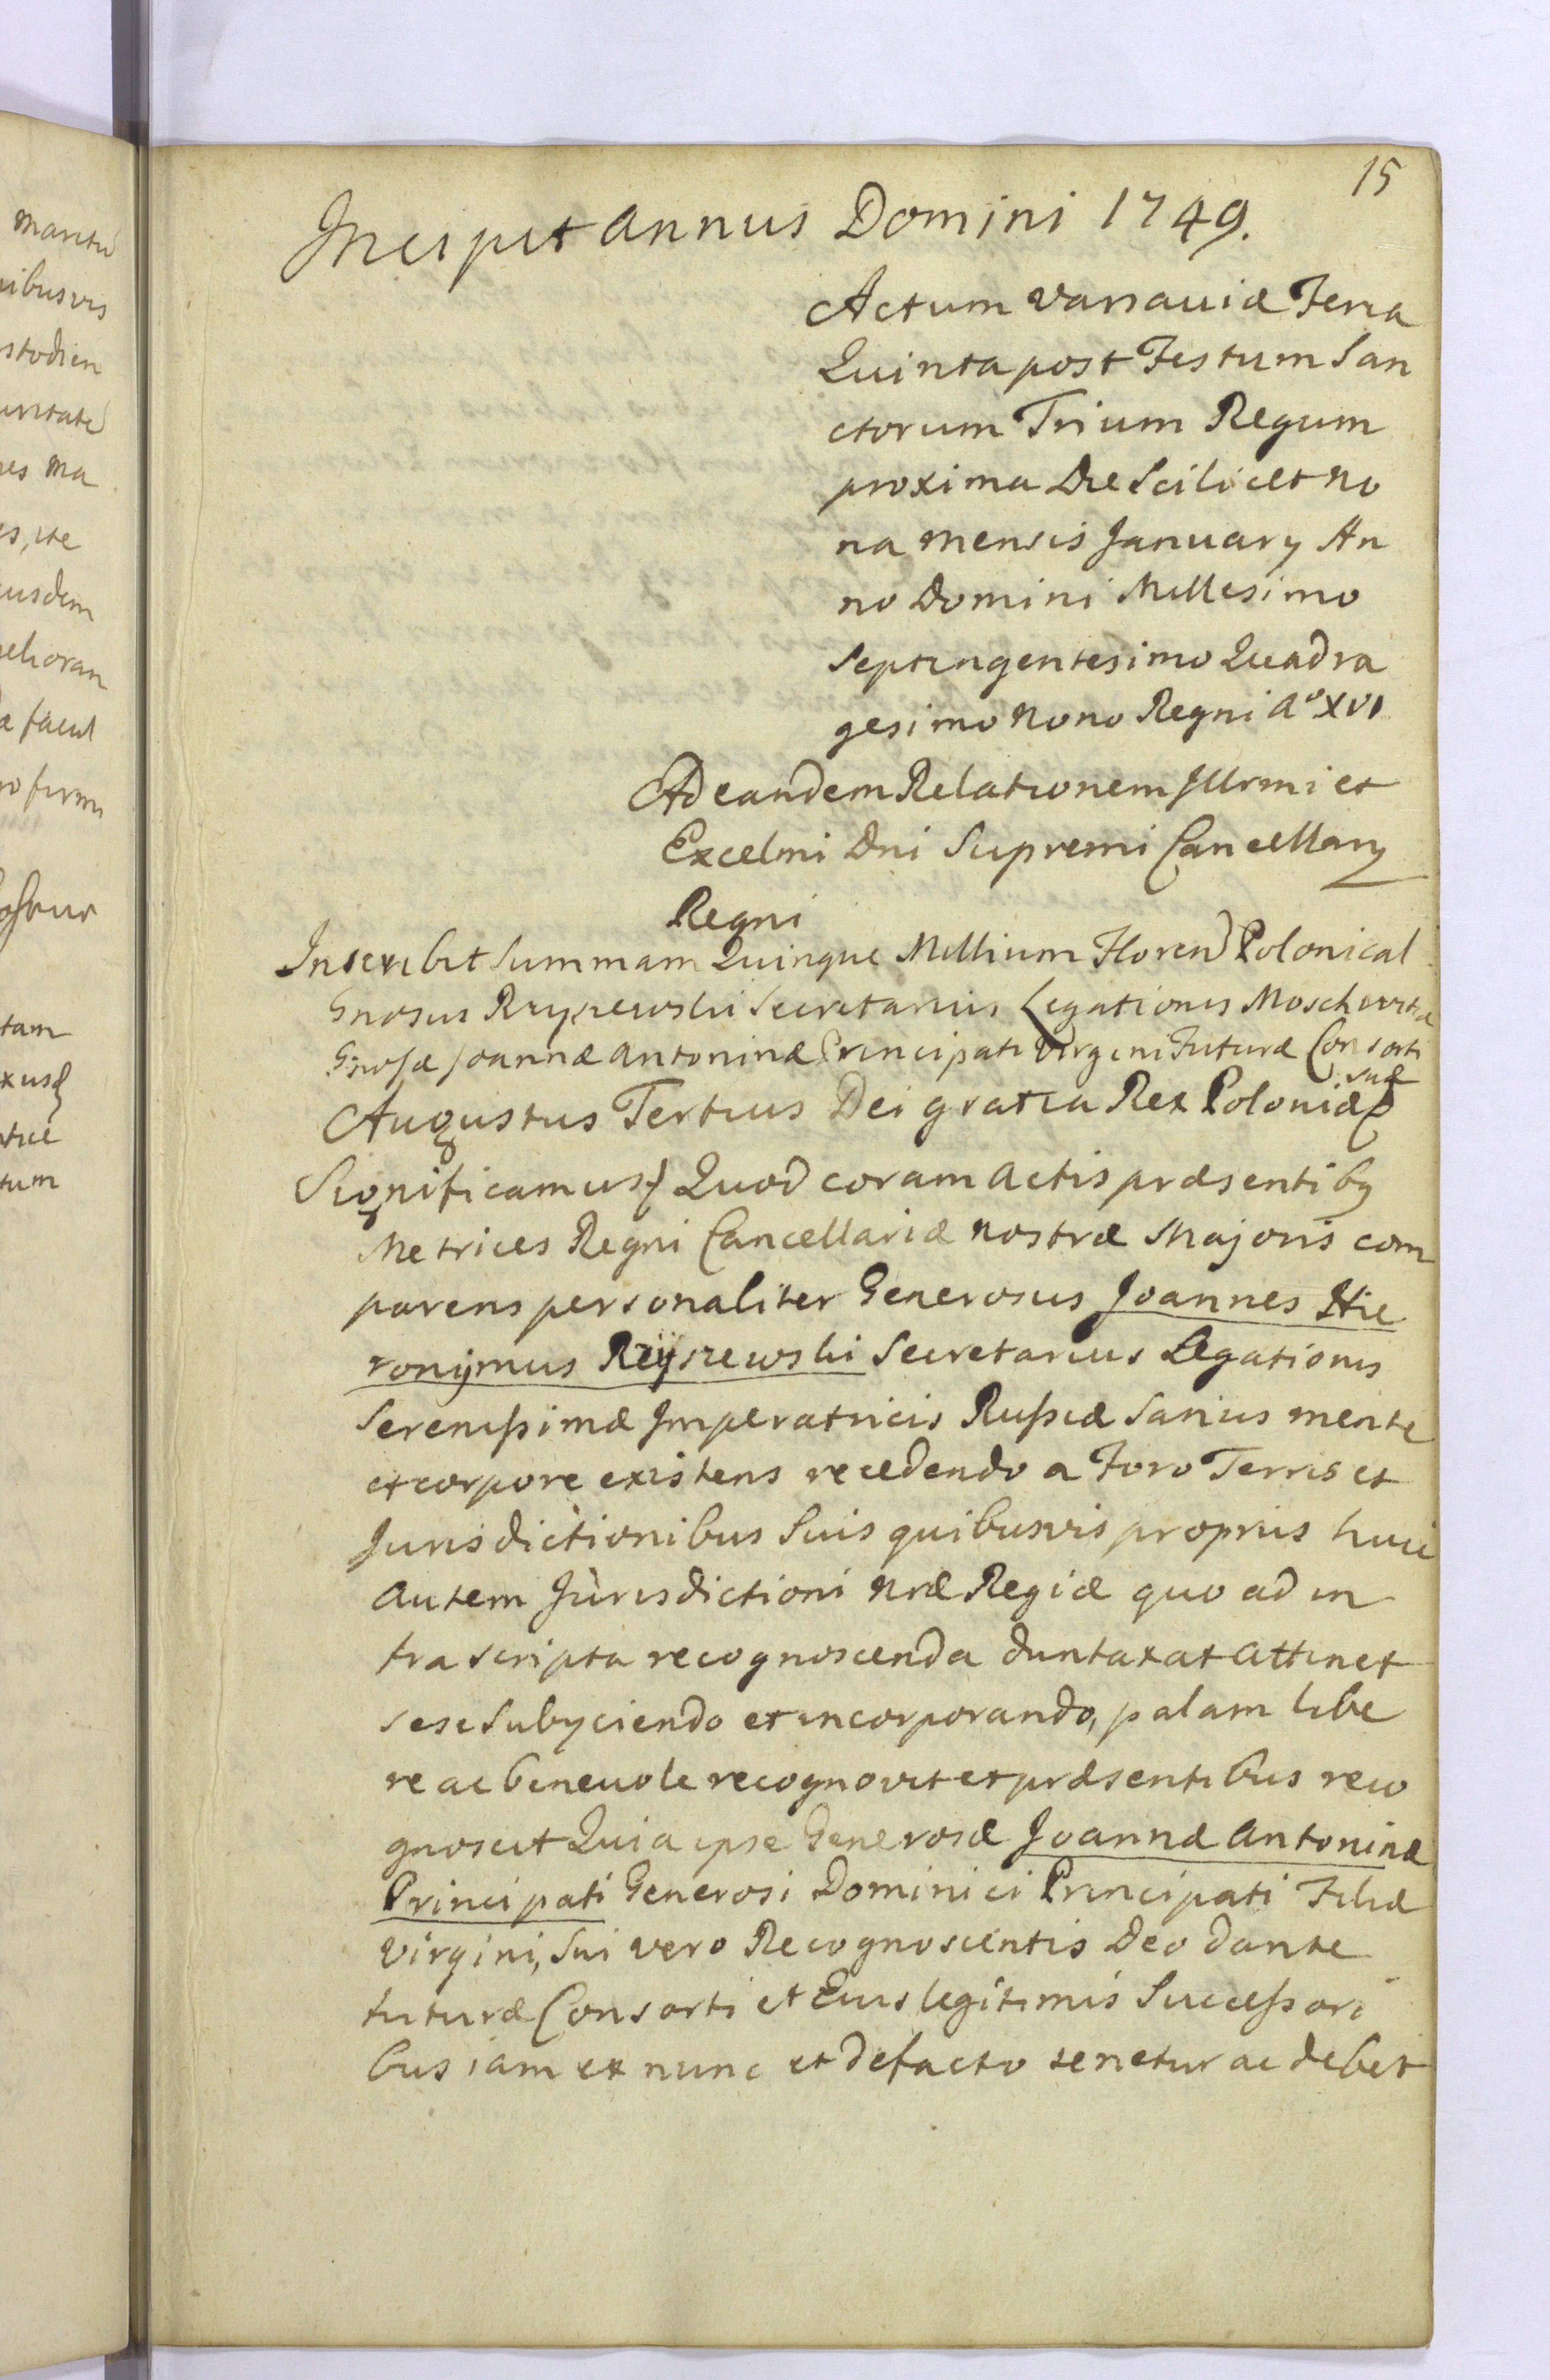 15
Incipit annus Domini 1749.
Actum Varsaviæ Feria
Quinta post Festum San
ctorum Trium Regum
proxima Die Scilicet no
na mensis January An
no Domini Millesimo
Septingentesimo Quadra
gesimo nono Regni Aº XVI
Ad eandem Relationem Illrmi et
Excelmi Dni Supremi Cancellary
Regni
Inscribit Summam Quinque Millium Floren Polonical
Gnosus Rzyszewski Secretarius Legationis Moschovitæ
Gnosæ Joannæ Antoninæ Principati Virgini Futuræ Consorti
suæ
Augustus Tertius Dei gratia Rex Poloniæ
Significamus Quod coram Actis præsentiby
Metrices Regni Cancellariæ nostræ Majoris com
parens personaliter Generosus Joannes Hie
ronÿmus Rzÿszewski Secretarius Legationis
Serenissimæ Imperatricis Russiæ Sanus mente
et corpore existens recedendo a Foro Terris et
Jurisdictionibus Suis quibusvis proprijs huic
autem Jurisdictioni nræ Regiæ quo ad in
fra scripta recognoscenda duntaxat attinet
sese Subyciendo et incorporando, palam libe
re ac benevole recognovit et præsentibus reco
gnoscit Quia ipse Generosæ Joannæ Antoninæ
Principati Generosi Dominici Principati Filiæ
Virgini, Sui vero Recognoscentis Deo dante
futuræ Consorti et Eius legitimis Successori
bus iam ex nunc et defacto tenetur ac debet
maritu
ibusvis
stodien
es ma
usdem
elioran
tam
tum